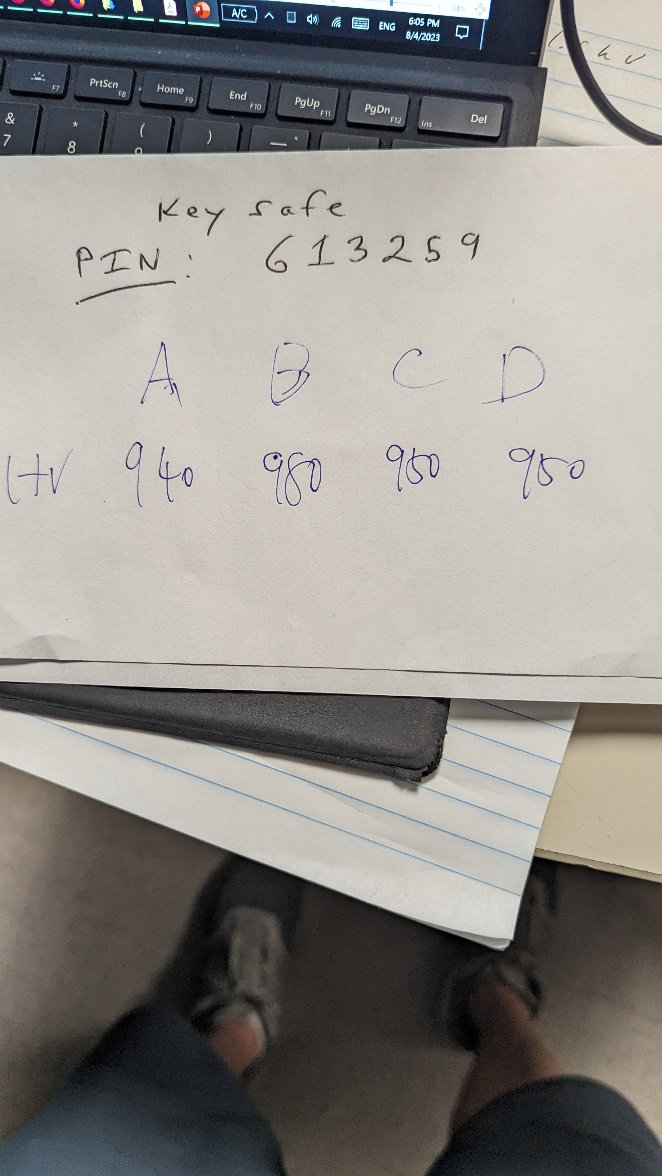 A/C ENG 6:05 PM
8/4/2023
F7 PrtScn F8 Home F9 End F10 PgUp F11 PgDn F12 Ins Del
& 7 * 8 ( )
Key safe
PIN: 613259
A B C D
940 980 950 950